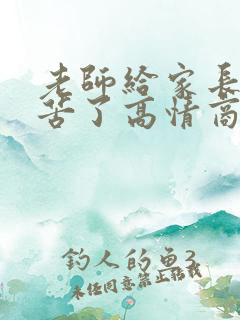 老師給家長
苦了高情商
釣人的魚3
未經同意禁止轉載